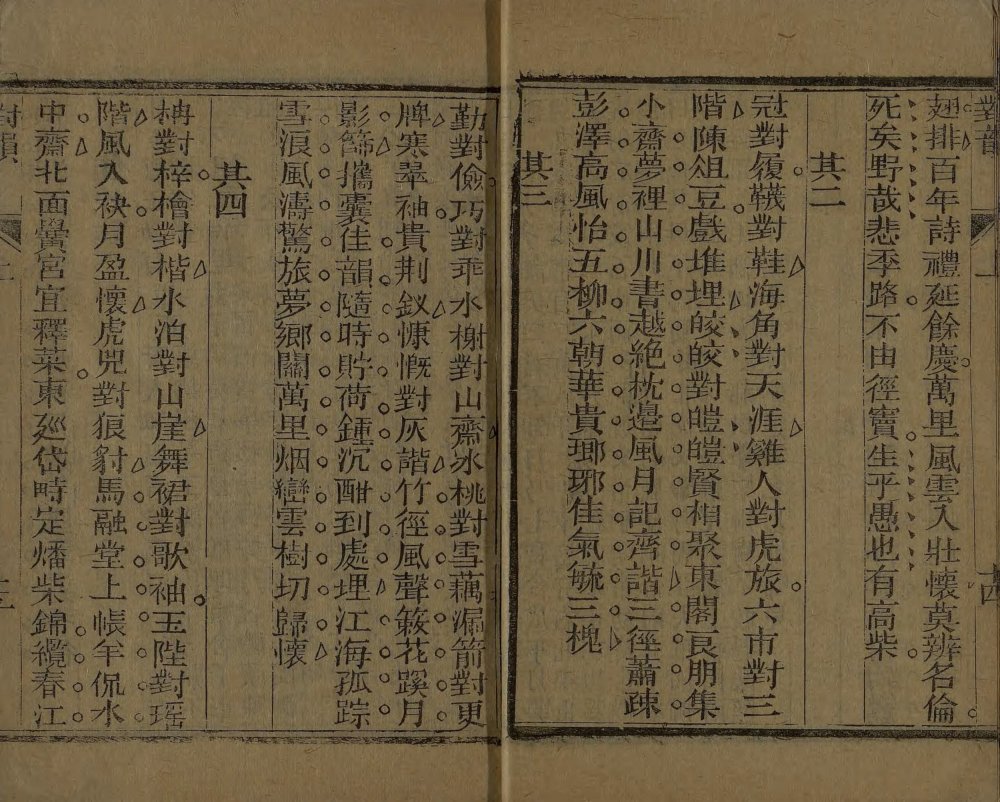 對韻
上
十四
翅排百年詩禮延餘慶萬里風雲入壯懷莫辨名倫
死矣野哉悲季路不由徑竇生乎愚也有高柴
其二
冠對履韈對鞋海角對天涯雞人對虎旅六市對三
階陳俎豆戲堆埋皎皎對皚皚賢相聚東閣良朋集
小齋夢裡山川書越絶枕邉風月記齊諧三徑蕭疎
彭澤高風怡五柳六朝華貴瑯琊佳氣毓三槐
其三
勤對儉巧對乖水榭對山齋冰桃對雪藕漏箭對更
牌寒翠袖貴荆釵慷慨對灰諧竹徑風聲籟花蹊月
影篩攜囊佳韻隨時貯荷鍾沉酣到處埋江海孤踪
雪浪風濤驚旅夢鄉關萬里烟巒雲樹切歸懷
其四
對梓檜對楷水泊對山崖舞裙對歌袖玉陛對瑶
階風入袂月盈懷虎兕對狼豺馬融堂上帳羊侃水
中齋北面黌宮宜釋菜東廵岱畤定燔柴錦纜春江
對韻
上